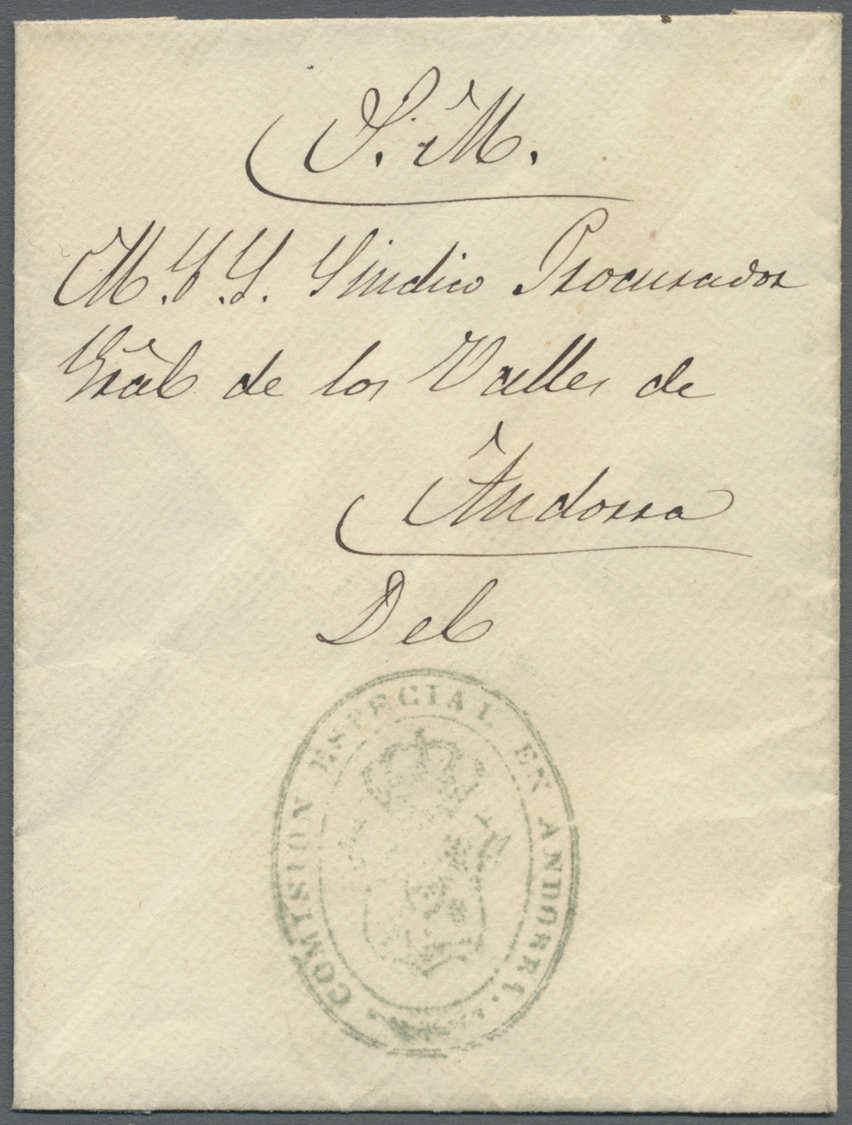 S. M.
M. I. S. Sindico Procurador
Gral de los Valles de
Andorra
Del
COMISION ESPECIAL EN ANDORRA.